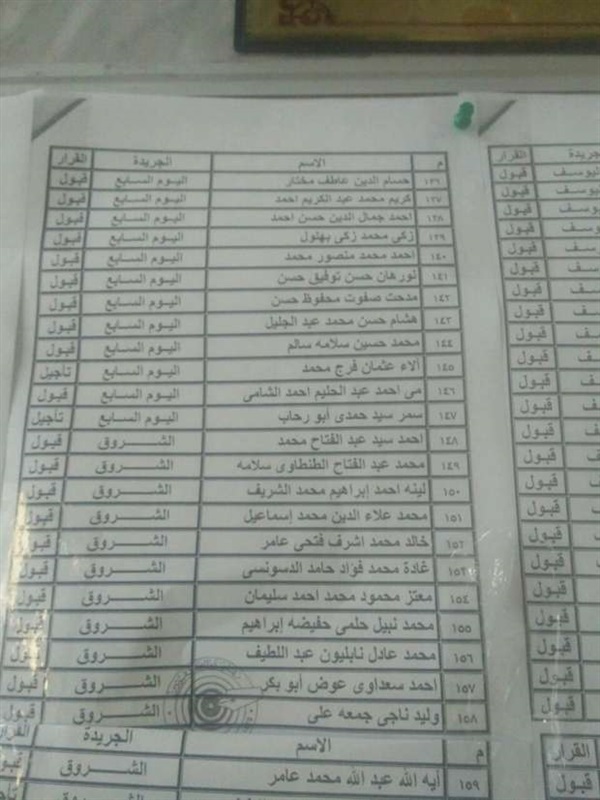 م الاسم الجريدة القرار
١٣٦ حسام الدين عاطف مختار اليوم السابع قبول
١٣٧ كريم محمد عبد الكريم احمد اليوم السابع قبول
١٣٨ احمد جمال الدين حسن احمد اليوم السابع قبول
١٣٩ زكى محمد زكى بهلول اليوم السابع قبول
١٤٠ احمد محمد منصور محمد اليوم السابع قبول
١٤١ نورهان حسن توفيق حسن اليوم السابع قبول
١٤٢ مدحت صفوت محفوظ حسن اليوم السابع قبول
١٤٣ هشام حسن محمد عبد الجليل اليوم السابع قبول
١٤٤ محمد حسين سلامه سالم اليوم السابع قبول
١٤٥ آلاء عثمان فرج محمد اليوم السابع تأجيل
١٤٦ مى احمد عبد الحليم احمد الشامى اليوم السابع قبول
١٤٧ سمر سيد حمدى أبو رحاب اليوم السابع تأجيل
١٤٨ احمد سيد عبد الفتاح محمد الشروق قبول
١٤٩ محمد عبد الفتاح الطنطاوى سلامه الشروق قبول
١٥٠ لينه احمد إبراهيم محمد الشريف الشروق قبول
١٥١ محمد علاء الدين محمد إسماعيل الشروق قبول
١٥٢ خالد محمد اشرف فتحى عامر الشروق قبول
١٥٣ غادة محمد فؤاد حامد الدسونسى الشروق قبول
١٥٤ معتز محمود محمد احمد سليمان الشروق قبول
١٥٥ محمد نبيل حلمى حفيضه إبراهيم الشروق قبول
١٥٦ محمد عادل نابليون عبد اللطيف الشروق قبول
١٥٧ احمد سعداوى عوض أبو بكر الشروق قبول
١٥٨ وليد ناجى جمعه على الشروق قبول
م الاسم الجريدة القرار
١٥٩ أيه الله عبد الله محمد عامر الشروق قبول